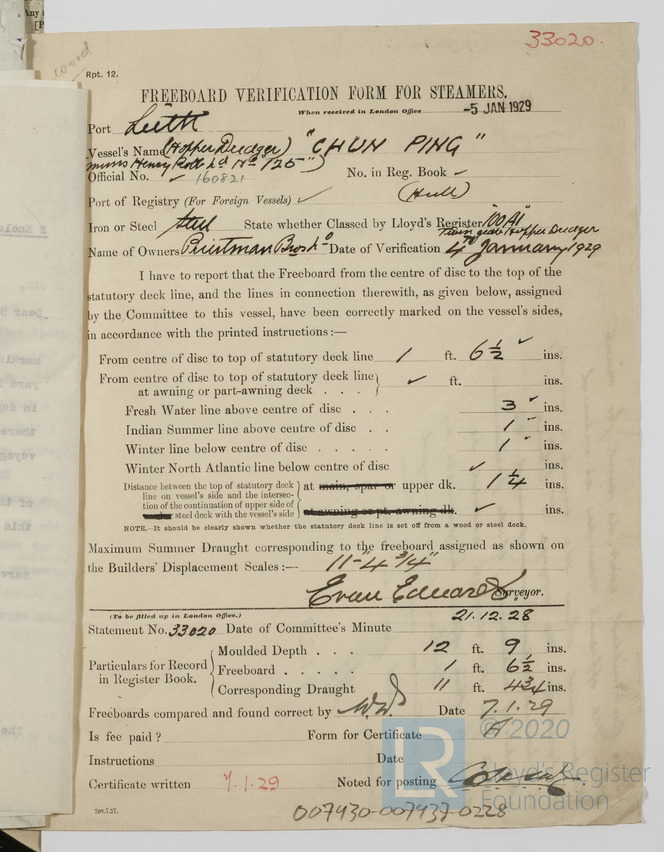 33020.
Rpt. 12.
FREEBOARD VERIFICATION FORM FOR STEAMERS.
When received in London Office -5 JAN 1929
Port Leith
Vessel's Name (Hopper Dredger) "CHUN PING"
Henry No "125")
Official No. ✓ 160821 No. in Reg. Book ✓
Port of Registry (For Foreign Vessels) ✓ (Hull)
Iron or Steel Steel State whether Classed by Lloyd's Register "100A1"
Hopper Dredger
Name of Owners Priestman Bros Ld Date of Verification 4th January 1929
I have to report that the Freeboard from the centre of disc to the top of the
statutory deck line, and the lines in connection therewith, as given below, assigned
by the Committee to this vessel, have been correctly marked on the vessel's sides,
in accordance with the printed instructions:—
From centre of disc to top of statutory deck line 1 ft. 6½ ✓ ins.
From centre of disc to top of statutory deck line
at awning or part-awning deck . . . ✓ ft. ins.
Fresh Water line above centre of disc . . . 3 ✓ ins.
Indian Summer line above centre of disc . . 1 ✓ ins.
Winter line below centre of disc . . . . . 1 ✓ ins.
Winter North Atlantic line below centre of disc ✓ ins.
Distance between the top of statutory deck
line on vessel's side and the intersec-
tion of the continuation of upper side of
steel deck with the vessel's side
at main, spar or upper dk. 1¼ ins.
at awning or pt. awning dk. ✓ ins.
NOTE.—It should be clearly shown whether the statutory deck line is set off from a wood or steel deck.
Maximum Summer Draught corresponding to the freeboard assigned as shown on
the Builders' Displacement Scales:— 11-"4¾"
Evan Edwards. Surveyor.
(To be filled up in London Office.)
Statement No. 33020 Date of Committee's Minute 21.12.28
Particulars for Record
in Register Book.
Moulded Depth . . . 12 ft. 9 ins.
Freeboard . . . . . 1 ft. 6½ ins.
Corresponding Draught 11 ft. 4¾ ins.
Freeboards compared and found correct by Date 7.1.29
Is fee paid? Form for Certificate A
Instructions Date
Certificate written 7.1.29 Noted for posting
2m.7.27.
007430-007437-0228
LR
© 2020
Lloyd's Register
Foundation